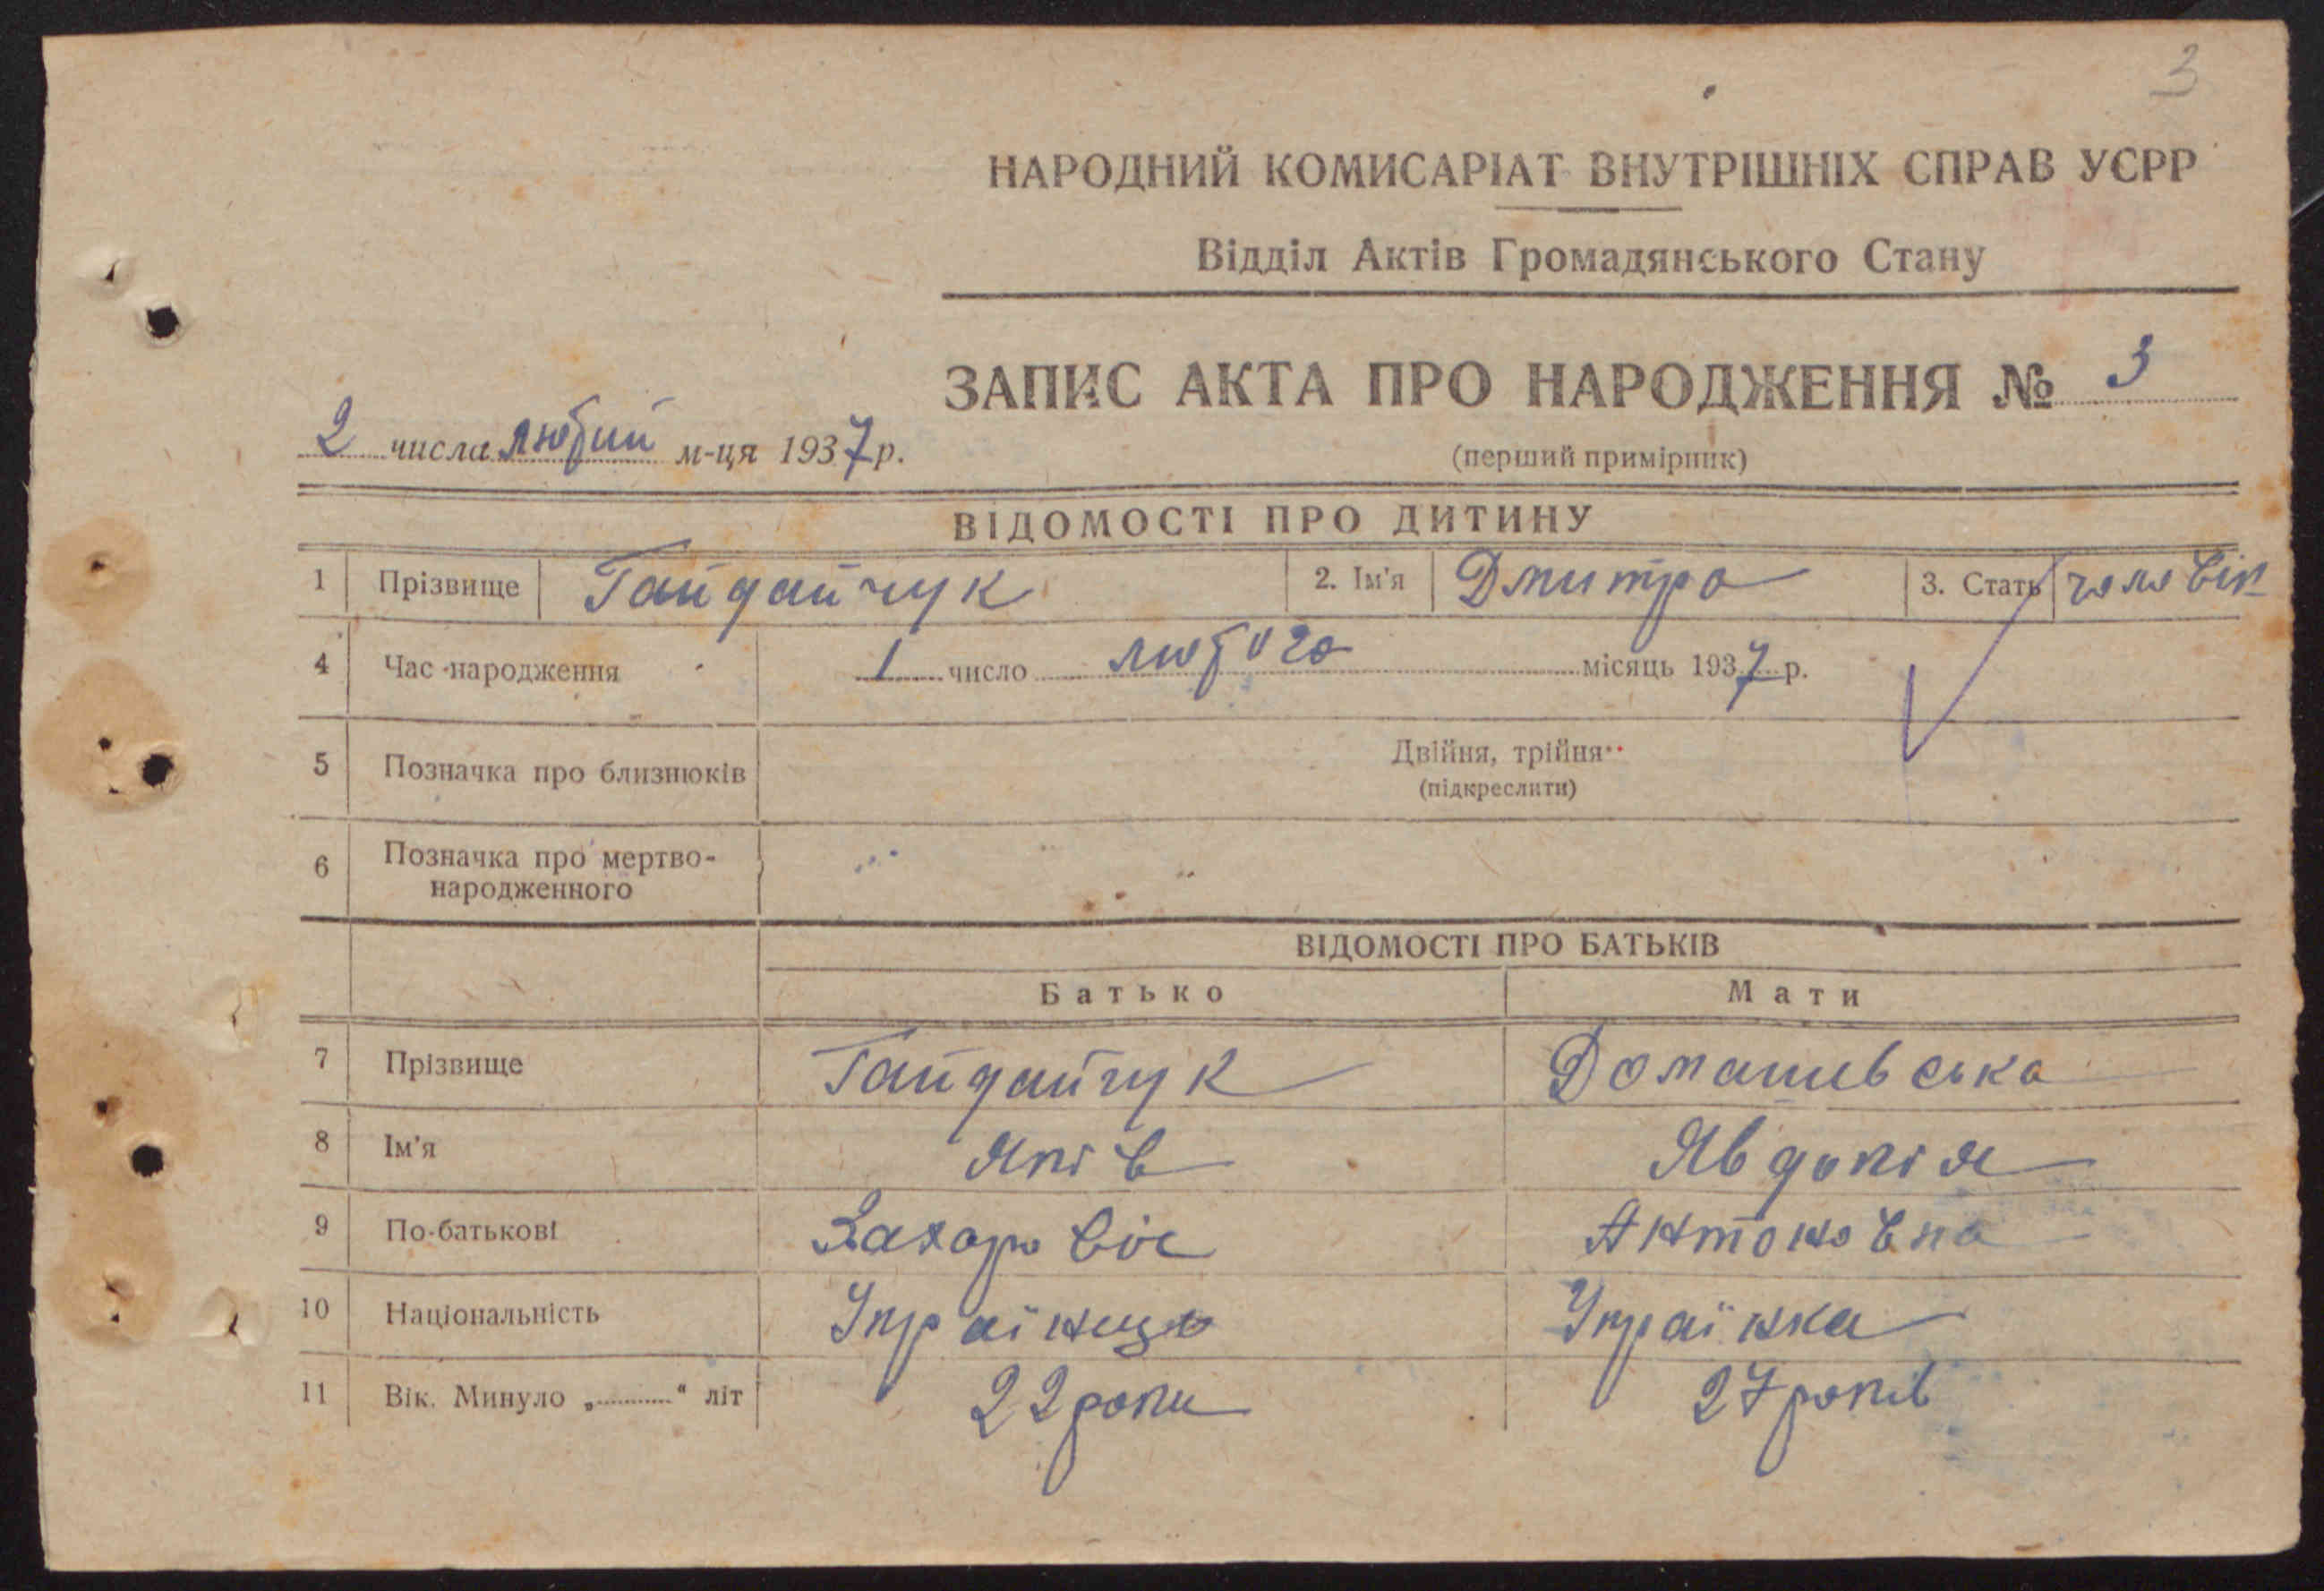 3
НАРОДНИЙ КОМИСАРІАТ ВНУТРІШНІХ СПРАВ УСРР
Відділ Актів Громадянського Стану
ЗАПИС АКТА ПРО НАРОДЖЕННЯ № 3
2 числа лютий м-ця 1937 р.
(перший примірник)
ВІДОМОСТІ ПРО ДИТИНУ
1 Прізвище Гайдайчук 2. Ім'я Дмитро 3. Стать чоловік
4 Час народження 1 число лютого місяць 1937 р.
5 Позначка про близнюків Двійня, трійня
(підкреслити)
6 Позначка про мертво-
народженного
ВІДОМОСТІ ПРО БАТЬКІВ
Батько Мати
7 Прізвище Гайдайчук Домашевська
8 Ім'я Яків Явдокія
9 По-батькові Захаровіс Антоновна
10 Національність Українець Українка
11 Вік. Минуло „ “ літ 22 роки 27 років